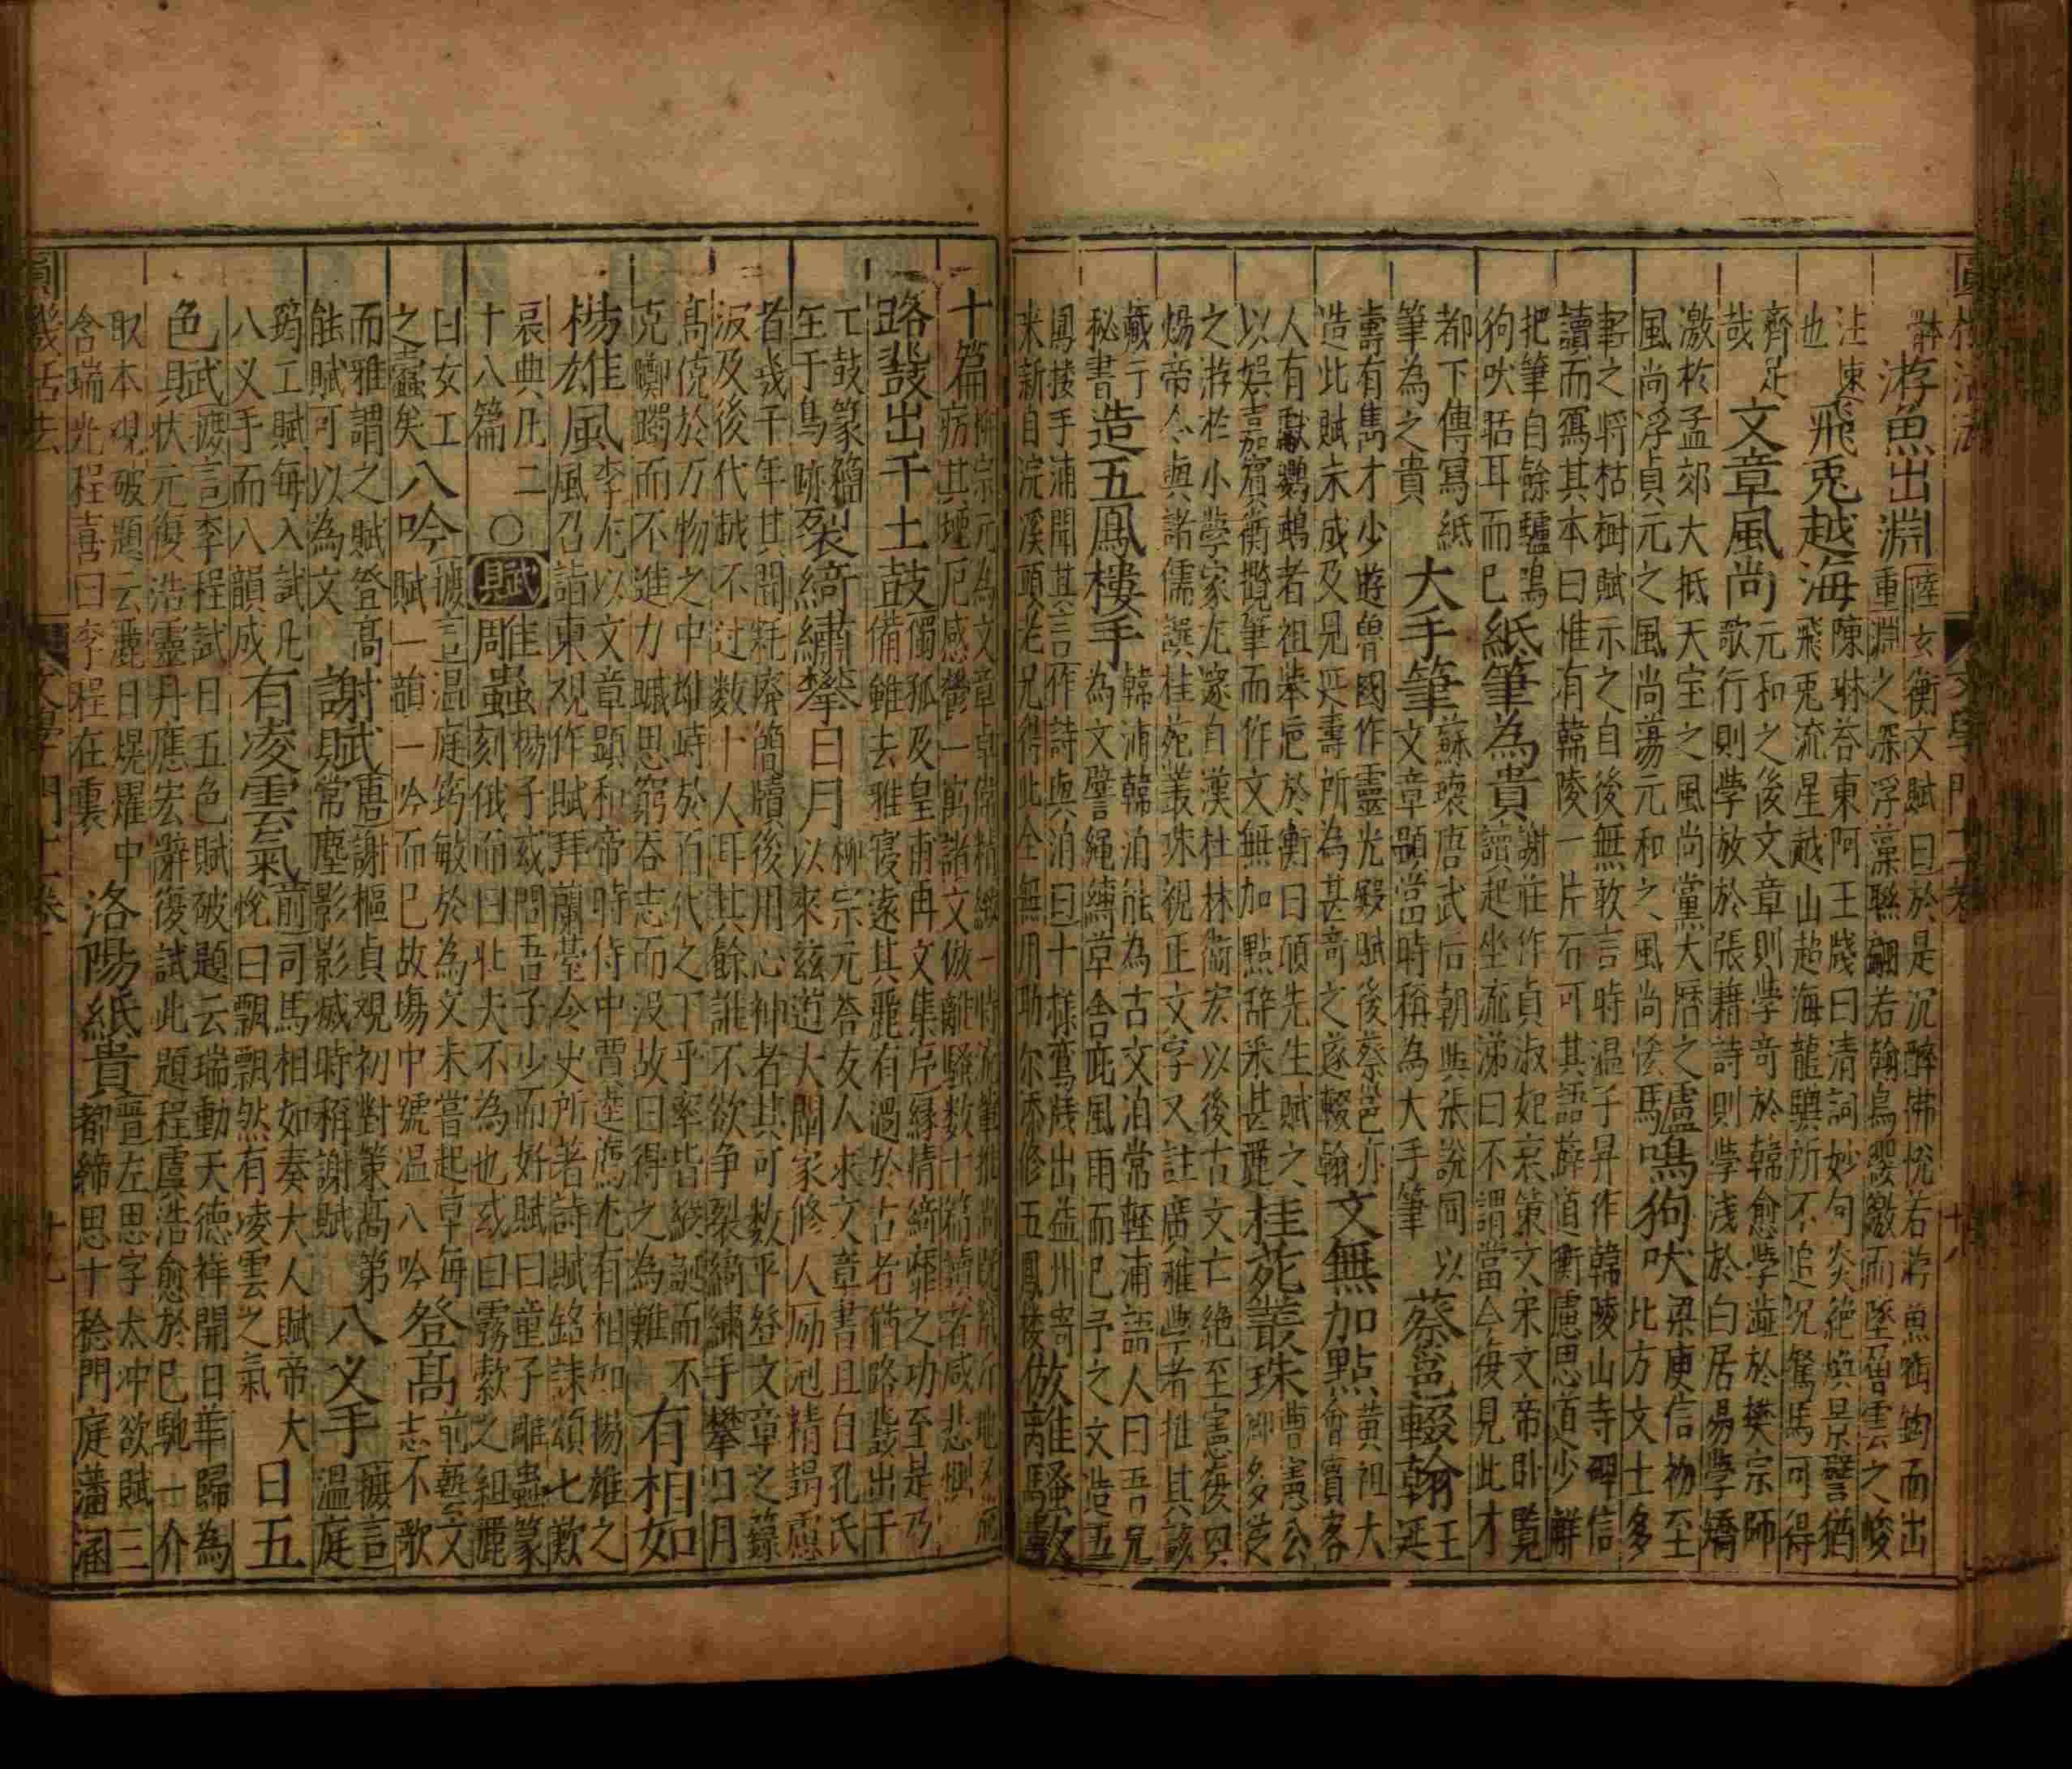 體 游魚出淵 陸玄衡文賦曰於是沉醉怫悅若游魚銜鉤而出
重淵之深浮藻聯翩若翰鳥纓繳而墜曾雲之峻
注速也 飛兎越海 陳琳荅東阿王牋曰清詞妙句炎絕煥景譬猶
飛兎流星越山超海龍驥所不追況駑馬可得
齊足哉 文章風尚 元和之後文章則學奇於韓愈學澁於樊宗師
歌行則學放於張藉詩則學淺於白居易學矯
激於孟郊大抵天宝之風尚黨大曆之
風尚浮貞元之風尚蕩元和之風尚恠 驢鳴狗吠 梁庾信初至
北方文士多
之將枯樹賦示之自後無敢言時温子昇作韓陵山寺碑信
讀而寫其本曰惟有韓陵一片石可其語薛道衡盧思道少觧
把筆自餘驢鳴
狗吠聒耳而已 紙筆為貴 謝莊作貞淑妃哀策文宋文帝卧覧
讀起坐流涕曰不謂當今復見此才
都下傳寫紙
筆為之貴 大手筆 蘇瓌唐武后朝與張說同以
文章題當時稱為大手筆 蔡邕輟翰 王
延
壽有雋才少遊魯國作靈光殿賦後蔡邕亦
造此賦未成及見延壽所為甚奇之遂輟翰 文無加點 黃祖大
會賓客
人有獻鸚鵡者祖舉巵於衡曰願先生賦之
以娯嘉賓衡攬筆而作文無加點辞采甚麗 桂苑叢珠 曹憲公
多
之游於小學家尤邃自漢杜林衛宏以後古文亡絕至憲復興
煬帝令與諸儒譔桂苑叢珠視正文字又註廣雅學者推其該
藏于
秘書 造五鳳樓手 韓浦韓洎能為古文洎常輕浦語人曰吾兄
為文譬繩縳草舍庇風雨而已予之文造五
鳳樓手浦聞其言作詩與洎曰十樣鸞牋出益州寄
来新自浣溪頭老兄得此全無用助尔添修五鳳樓 倣離騷數
十篇 柳宗元為文章卓偉精緻一時
其堙厄感鬱一寓諸文倣離騷数十篇讀者咸悲惻
路鼗出千土鼓 獨孤及皇甫冉文集序緣情綺靡之功至是乃
備雖去雅寖遠其麗有過於古者猶路鼗出于
土鼓篆籀
生于鳥跡 裂綺繡攀日月 柳宗元荅友人求文章書且自孔氏
以來茲道大闡家修人勵刓精竭慮
者幾千年其間耗廢簡牘後用心神者其可数乎登文章之籙
汲及後代越不过数十人耳其餘誰不欲争裂綺繡手攀日月
高伉於万物之中雄峙於百代之下乎率皆縱誕而不
克躑躅而不進力𧾷思窮吞志而没故曰得之為難 有相如
楊雄風 李尤以文章顕和帝時侍中賈逵薦尤有相如楊雄之
風召詣東观作賦拜蘭臺令史所著詩賦銘誄頌七歎
哀典凡二
十八篇 〇 賦 雕蟲 楊子或問吾子少而好賦曰童子雕蟲篆
刻俄而曰壮夫不為也或曰霧縠之組麗
曰女工
之蠹矣 八吟 摭言温庭筠敏於為文未嘗起草每
賦一韻一吟而已故塲中號温八吟 登高 前藝文
志不歌
而雅謂之賦登高
能賦可以為文 謝賦 唐謝樞貞观初對策高第
常塵影影烕時稱謝賦 八义手 摭言
温庭
筠工賦每入試凡
八义手而八韻成 有凌雲氣 前司馬相如奏大人賦帝大
悅曰飄飄然有凌雲之氣 日五
色賦 摭言李程試日五色賦破題云瑞動天德祥開日華歸為
状元復浩靈丹應宏辭復試此題程虞浩愈於已馳一介
取本观破題云麗日熀耀中
含瑞光程喜曰李程在裏 洛陽紙貴 晉左思字太冲欲賦三
都締思十稔門庭藩溷